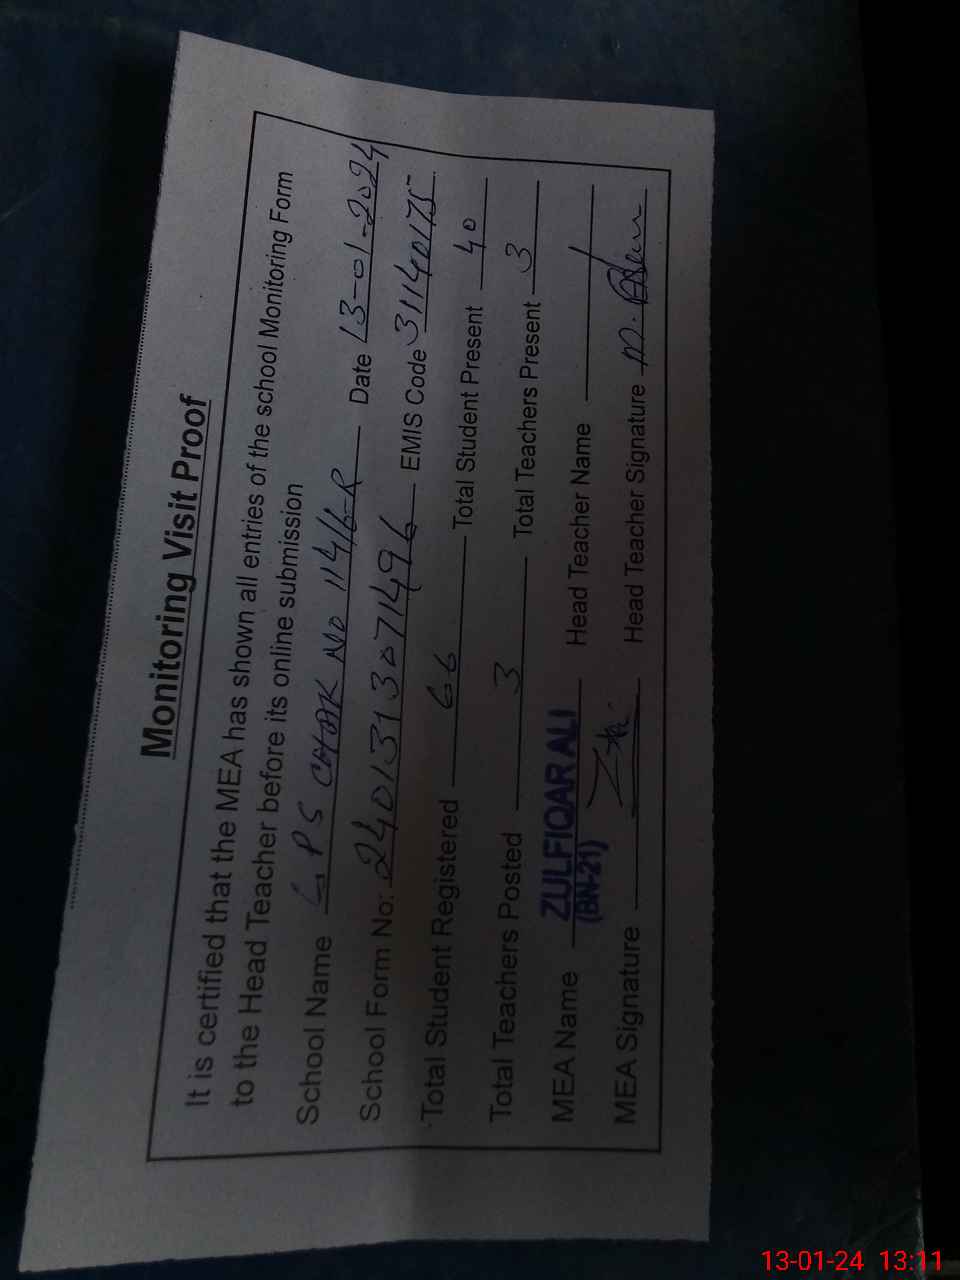 Monitoring Visit Proof
It is certified that the MEA has shown all entries of the school Monitoring Form
to the Head Teacher before its online submission
School Name GPS CHAK NO 114/6-R Date 13-01-2024
School Form No: 2401313307149 6 EMIS Code 31140175
Total Student Registered 66 Total Student Present 40
Total Teachers Posted 3 Total Teachers Present 3
MEA Name ZULFIQAR ALI Head Teacher Name
(BN-21)
MEA Signature Head Teacher Signature
13-01-24 13:11